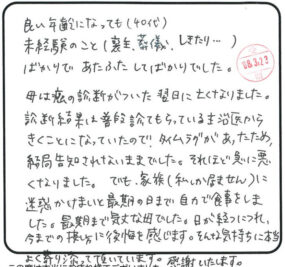 良い年齢になっても(40代)
未経験のこと(喪主、葬儀、しきたり…)
ばかりで あたふた してばかりでした。
母は癌の診断がついた翌日に亡くなりました。
診断結果は普段診てもらっている主治医から
きくことになっていたので、タイムラグがあったため、
結局告知されないままでした。それほど急に悪
くなりました。でも、家族(私しか居ません)に
迷惑かけまいと最期の日まで自力で食事をしま
した。最期まで気丈な母でした。日が経つにつれ、
今までの接し方に後悔を感じます。そんな気持ちに本当
よく寄り添って頂いています。感謝いたします。